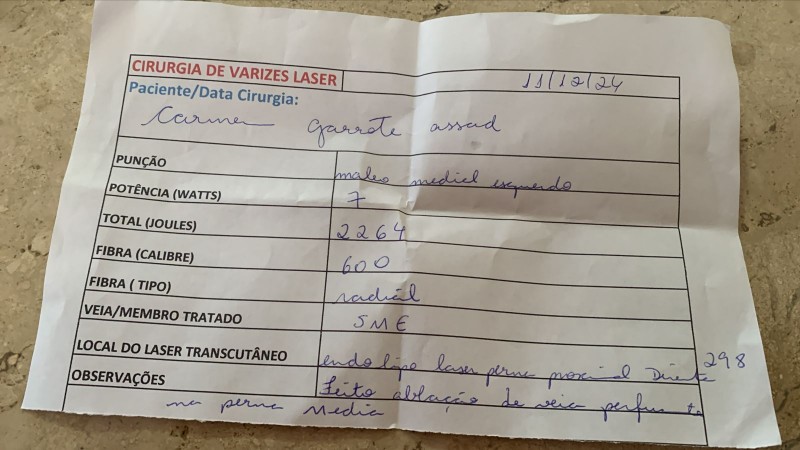 CIRURGIA DE VARIZES LASER 11/12/24
Paciente/Data Cirurgia:
Carmen Garrote assad
PUNÇÃO maleo medial esquerdo
POTÊNCIA (WATTS) 7
TOTAL (JOULES) 2264
FIBRA (CALIBRE) 600
FIBRA ( TIPO) radial
VEIA/MEMBRO TRATADO SME
LOCAL DO LASER TRANSCUTÂNEO endo lipo laser perna proximal Direita 298
OBSERVAÇÕES feito ablação de veia perfurante
na perna Media